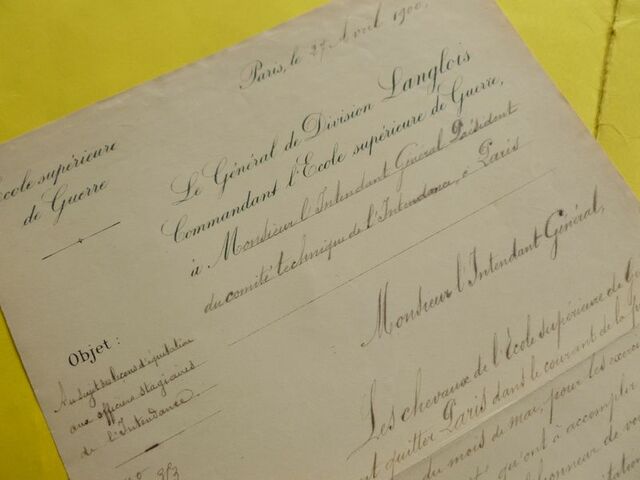 Paris, le 27 Avril 1900.
Ecole supérieure
de Guerre
Le Général de Division Langlois
Commandant l'Ecole supérieure de Guerre,
à Monsieur l'Intendant Général Président
du comité technique de l'Intendance, à Paris
Objet :
Au sujet des leçons d'équitation
aux officiers stagiaires
de l'Intendance.
Monsieur l'Intendant Général,
Les chevaux de l'École supérieure de
quitter Paris dans le courant de la
du mois de mai, pour les
qu'ont à accomplir
honneur de